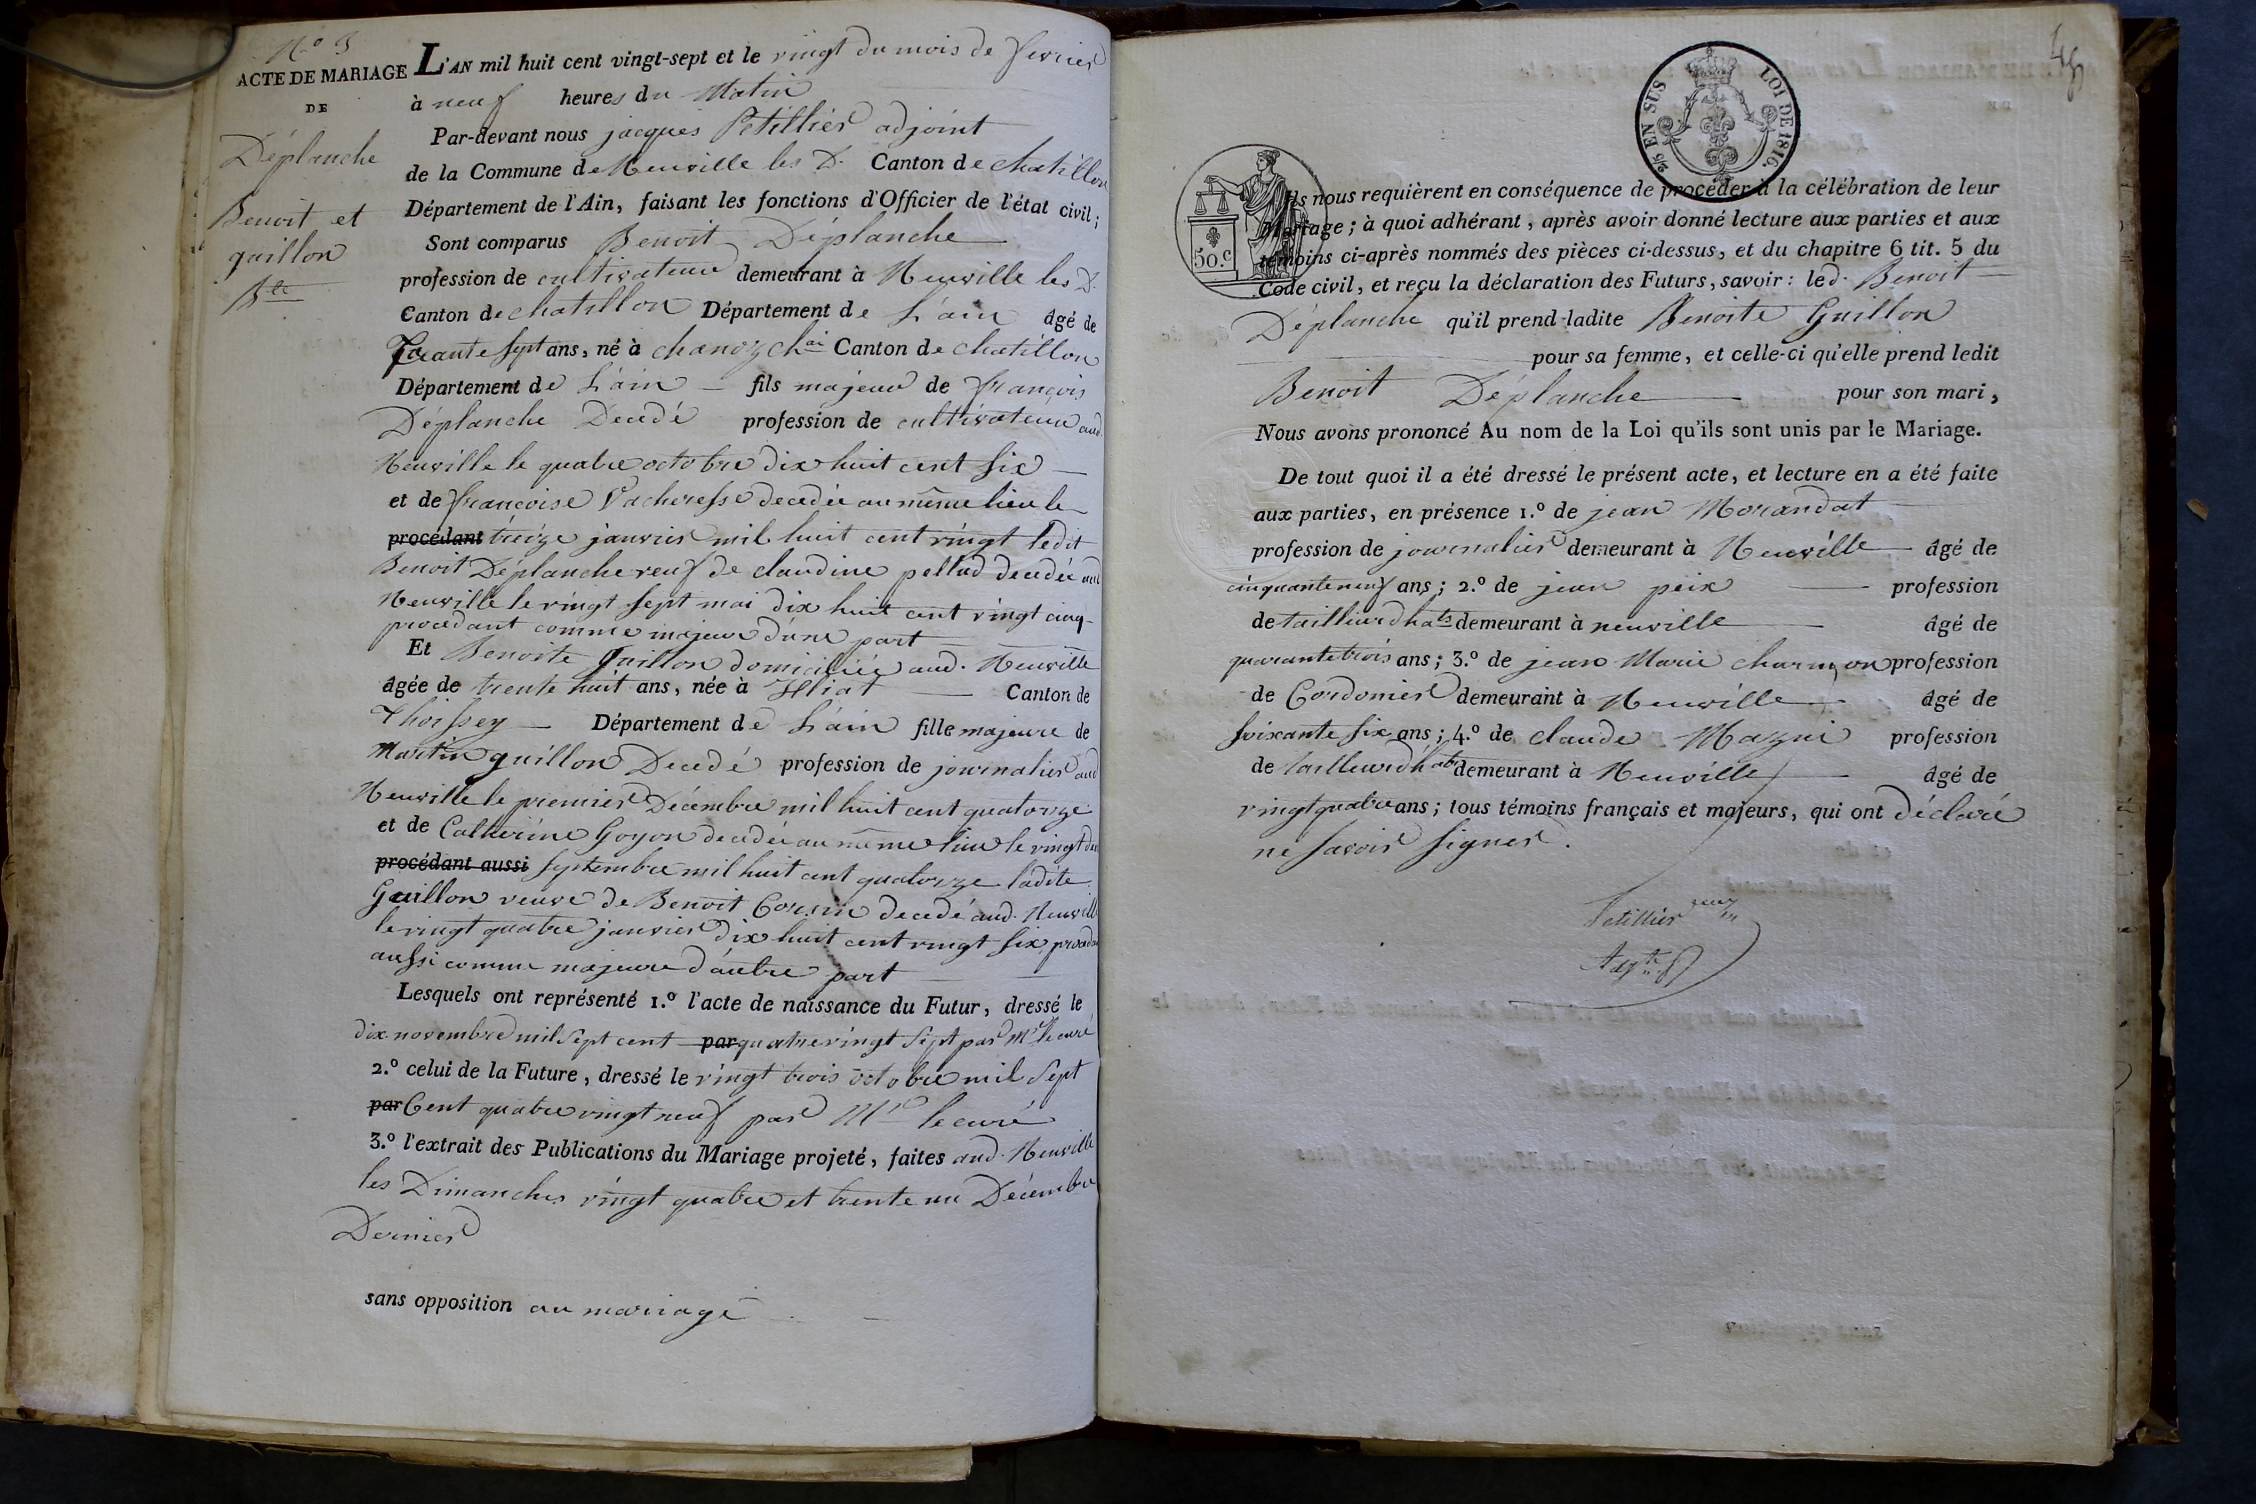 N° 3
ACTE DE MARIAGE
DE
Déplanche
Benoit et
guillon
Bte
L'AN mil huit cent vingt-sept et le vingt du mois de fevrier
à neuf heures du Matin
Par-devant nous jacques Petillier adjoint
de la Commune de Neuville les D. Canton de chatillon
Département de l'Ain, faisant les fonctions d'Officier de l'état civil;
Sont comparus Benoit Déplanche
profession de cultivateur demeurant à Neuville les D.
Canton de chatillon Département de L'ain âgé de
sept ans, né à chanoz chai Canton de chatillon
Département de L'ain fils majeur de françois
Déplanche Decedé profession de cultivateur aud.
Neuville le quatre octobre dix huit cent six
et de françoise Vacheresse decedée au même lieu le
procédant treize janvier mil huit cent vingt ledit
Benoit Déplanche veuf de claudine pelud decedée aud
Neuville le vingt sept mai dix huit cent vingt cinq
procedant comme majeur d'une part
Et Benoite Guillon domiciliée aud. Neuville
âgée de trente huit ans, née à Illiat Canton de
Thoissey Département de L'ain fille majeure de
Martin guillon Decedé profession de journalier aud
Neuville le premier Décembre mil huit cent quatorze
et de Catherine Goyon decedée au même lieu le vingt
procédant aussi septembre mil huit cent quatorze ladite
Guillon veuve de Benoit decedé aud. Neuville
le vingt quatre janvier dix huit cent vingt six procedant
aussi comme majeure d'autre part
Lesquels ont représenté 1.° l'acte de naissance du Futur, dressé le
dix novembre mil sept cent par quatrevingt sept par Mr le curé
2.° celui de la Future, dressé le vingt trois octobre mil sept
par Cent quatre vingt neuf par Mr le curé
3.° l'extrait des Publications du Mariage projeté, faites aud. Neuville
les Dimanches vingt quatre et trente un Décembre
Dernier
sans opposition au mariage
2/5 EN SUS
LOI DE 1816.
50.c
Ils nous requièrent en conséquence de procéder à la célébration de leur
Mariage; à quoi adhérant, après avoir donné lecture aux parties et aux
témoins ci-après nommés des pièces ci-dessus, et du chapitre 6 tit. 5 du
Code civil, et reçu la déclaration des Futurs, savoir: led. Benoit
Déplanche qu'il prend ladite Benoite Guillon
pour sa femme, et celle-ci qu'elle prend ledit
Benoit Déplanche pour son mari,
Nous avons prononcé Au nom de la Loi qu'ils sont unis par le Mariage.
De tout quoi il a été dressé le présent acte, et lecture en a été faite
aux parties, en présence 1.° de jean Morandat
profession de journalier demeurant à Neuville âgé de
cinquante neuf ans; 2.° de jean peix profession
de tailleur dhats demeurant à neuville âgé de
quarante trois ans; 3.° de jean Marie profession
de Cordonier demeurant à Neuville âgé de
soixante six ans; 4.° de claude profession
de tailleur dhats demeurant à Neuville âgé de
vingt quatre ans; tous témoins français et majeurs, qui ont déclaré
ne savoir signer.
Petillier
Adjt